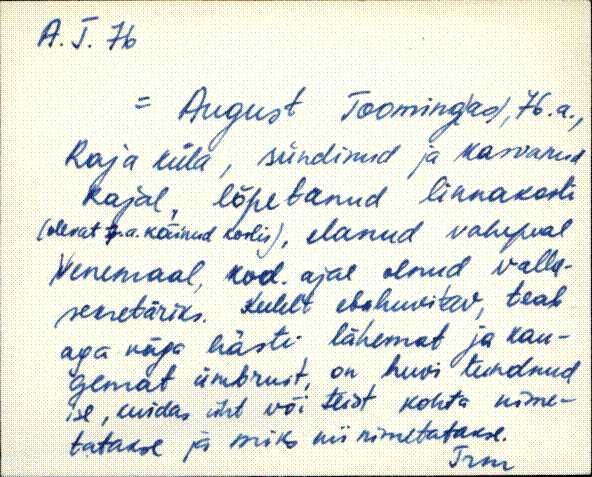 A. T. 76
= August Tooming(as), 76.a.,
Raja küla, sündinud ja kasvanud
Rajal, lõpetanud linnakooli
(olevat a. käinud koolis), elanud vahepeal
Venemaal, kod. ajal olnud valla-
sekretäriks. Keelelt ebahuvitav, teab
aga väga hästi lähemat ja kau-
gemat ümbrust, on huvi tundnud
ise, kuidas üht või teist kohta nime-
tatakse ja miks nii nimetatakse.
Trm